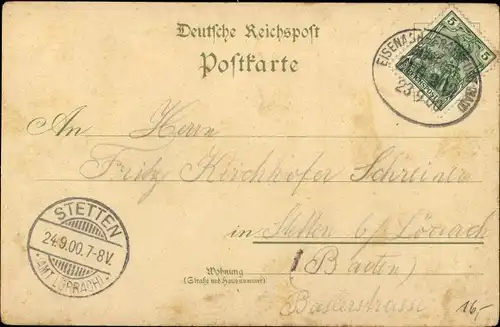 Deutsche Reichspost
Postkarte
5 5
EISENACH
23.9.00
An Herrn
Fritz Kirchhofer Schreiner
in Stetten b/ Lörrach
(Baden)
Wohnung
(Straße und Hausnummer)
Baslerstrasse
STETTEN
24.9.00.7-8V.
(AMT LÖRRACH)
16,-